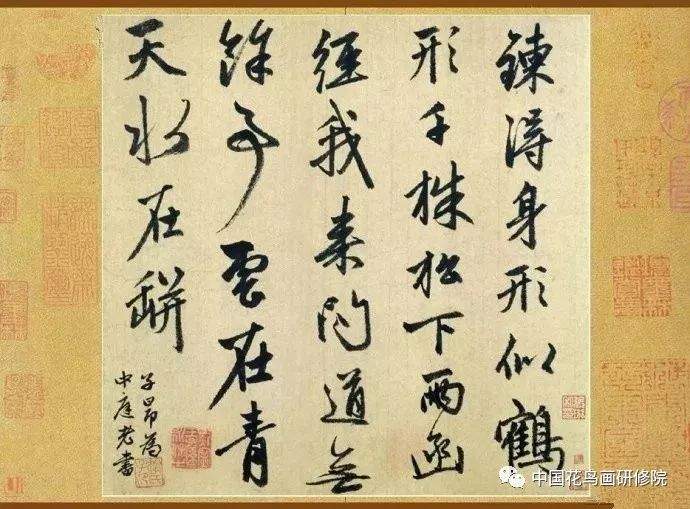 鍊得身形似鶴
形千株松下兩函
經我来問道無
餘事雲在青
天水在缾
子昂為
中庭老書
中国花鸟画研修院